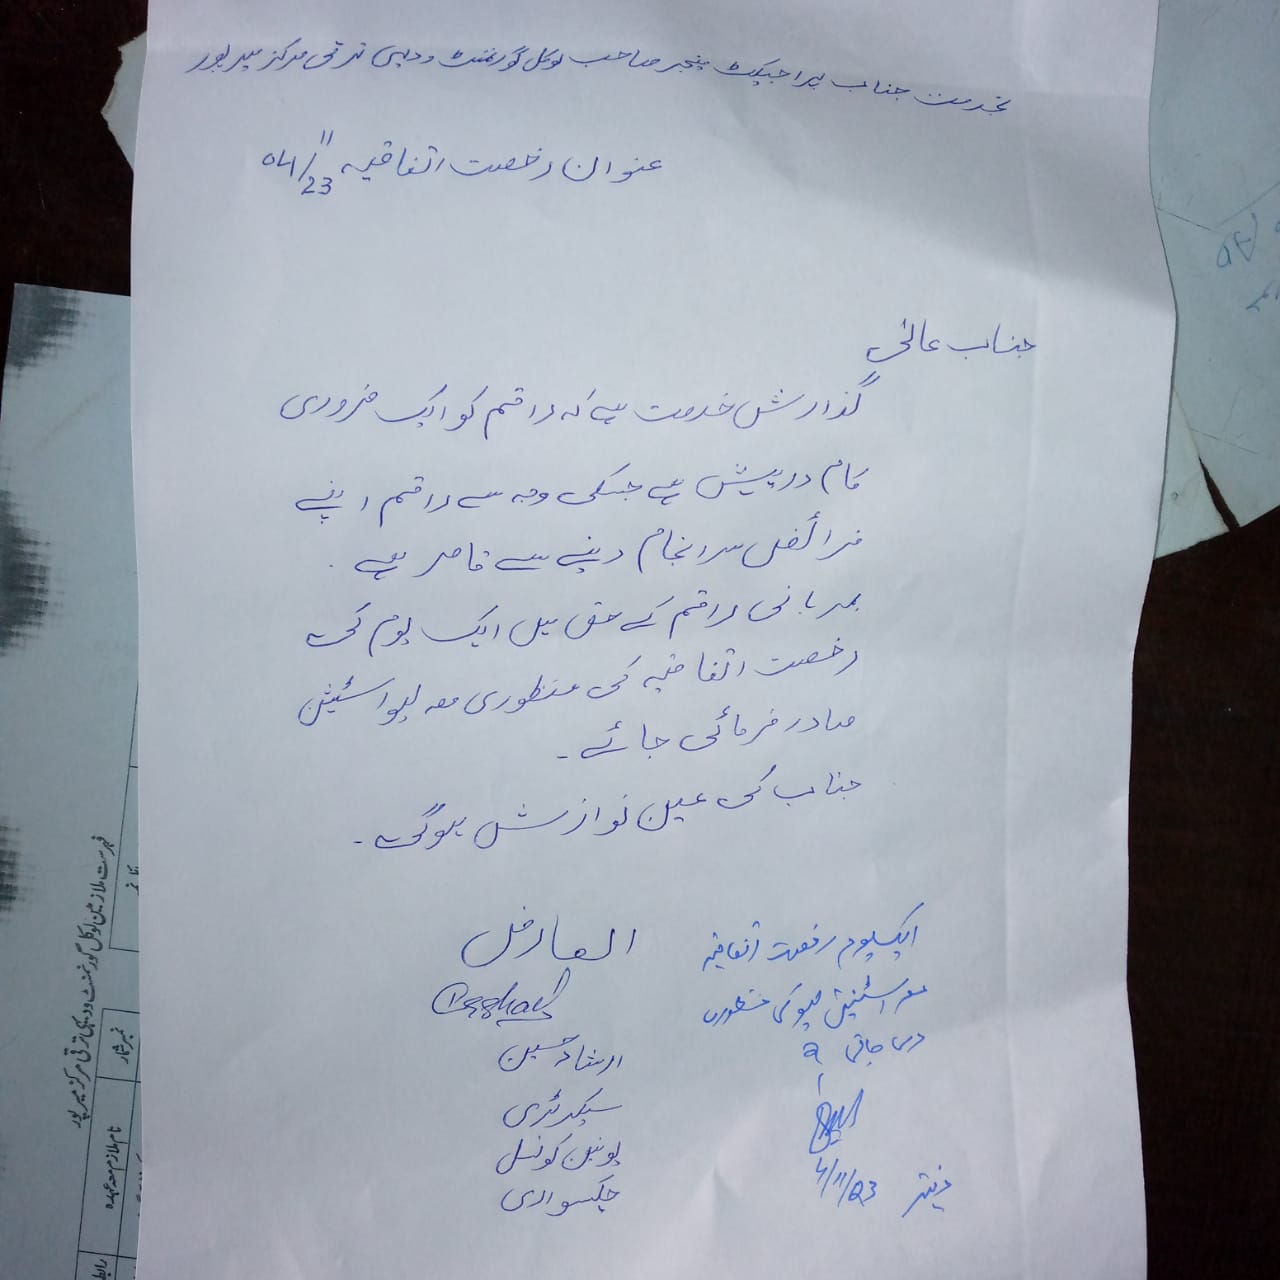 بخدمت جناب پراجیکٹ منیجر صاحب لوکل گورنمنٹ و دیہی ترقی مرکز میرپور
عنوان رخصت اتفاقیہ 04/11/23
جناب عالی
گذارش خدمت ہے کہ راقم کو ایک ضروری
کام درپیش ہے جسکی وجہ سے راقم اپنے
فرائض سرانجام دینے سے قاصر ہے .
بمہربانی راقم کے حق میں ایک یوم کی
رخصت اتفاقیہ کی منظوری معہ لیو اسٹیشن
صادر فرمائی جائے ۔
جناب کی عین نوازش ہوگی ۔
العارض
Irshad
ارشاد حسین
سیکرٹری
یونین کونسل
چکسواری
ایک یوم رخصت اتفاقیہ
معہ اسٹیشن لیو کی منظوری
دی جاتی ہے
دفتر 4/11/23
فہرست ملازمین لوکل گورنمنٹ و دیہی ترقی مرکز میرپور
نمبر شمار
نام ملازم معہ عہدہ